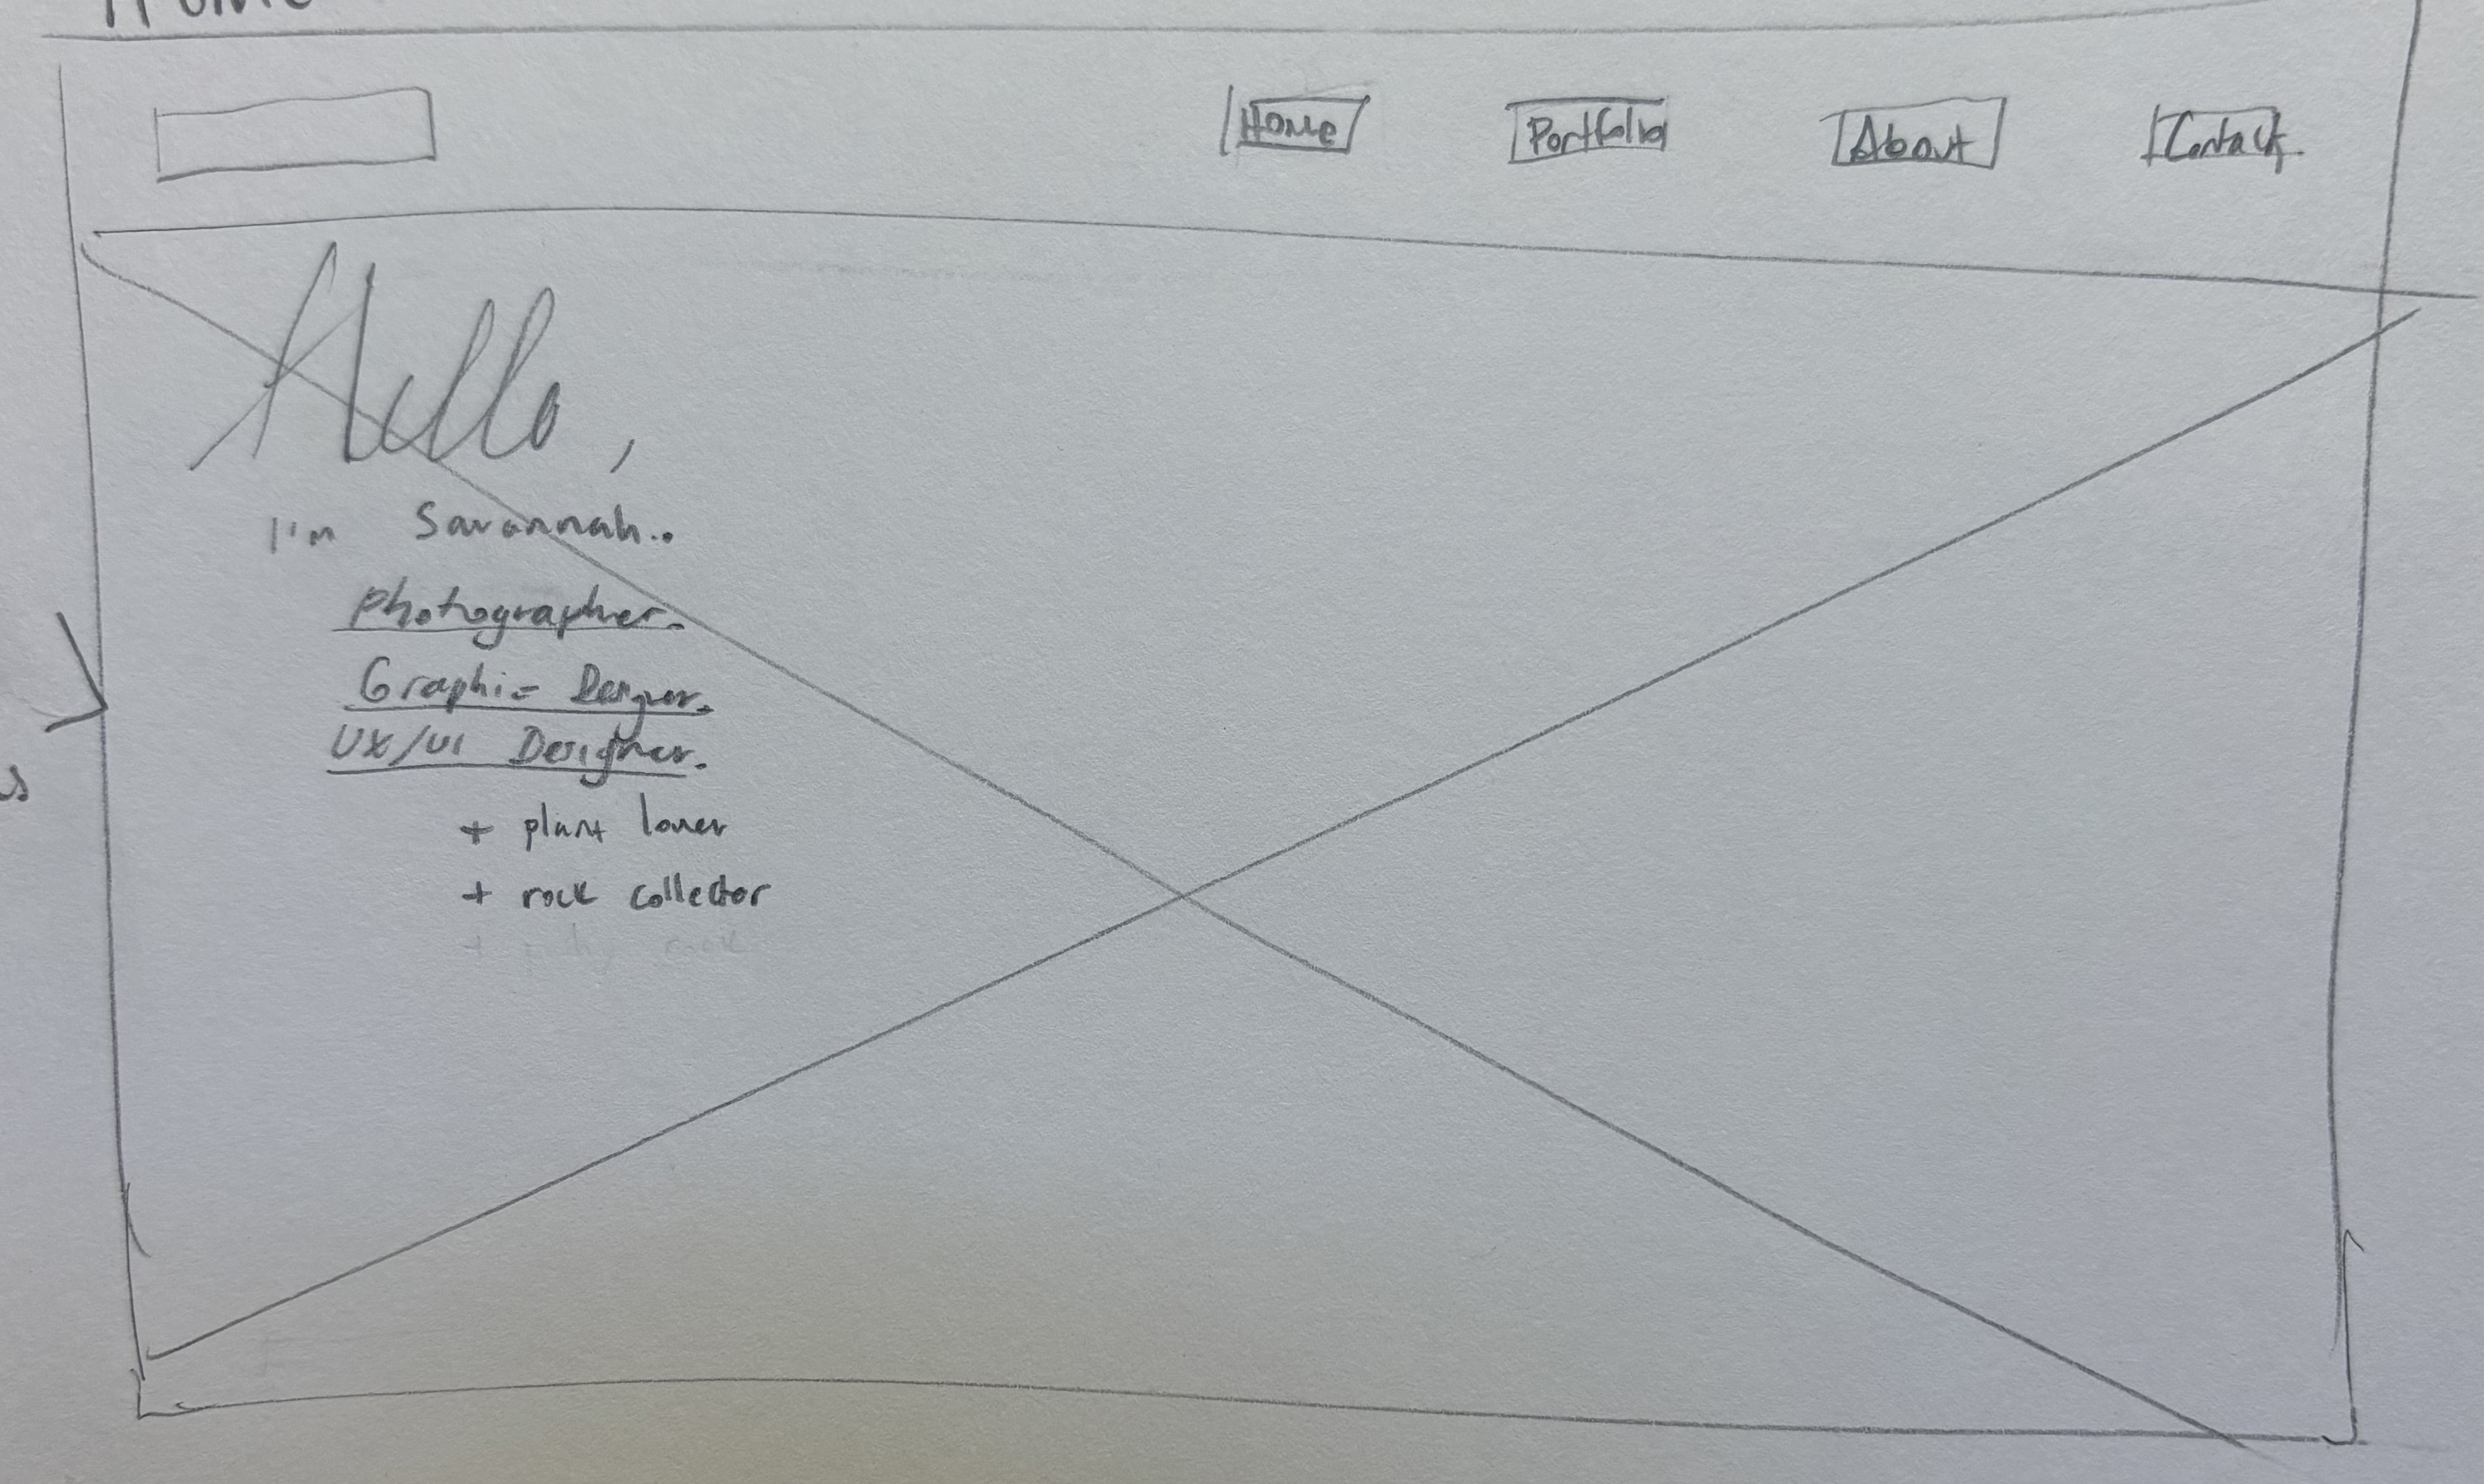 Home
Home Portfolio About Contact
Hello,
I'm Savannah..
photographer.
Graphic Designer.
UX/UI Designer.
+ plant lover
+ rock collector
+ rock